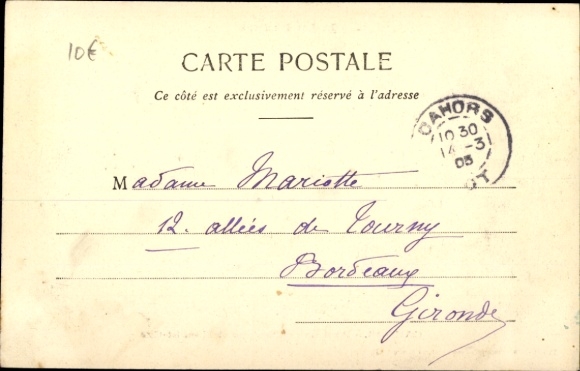 10€
CARTE POSTALE
Ce côté est exclusivement réservé à l'adresse
CAHORS
10 30
14 -3
03
LOT
Madame Mariotte
12. allées de Tourny
Bordeaux
Gironde